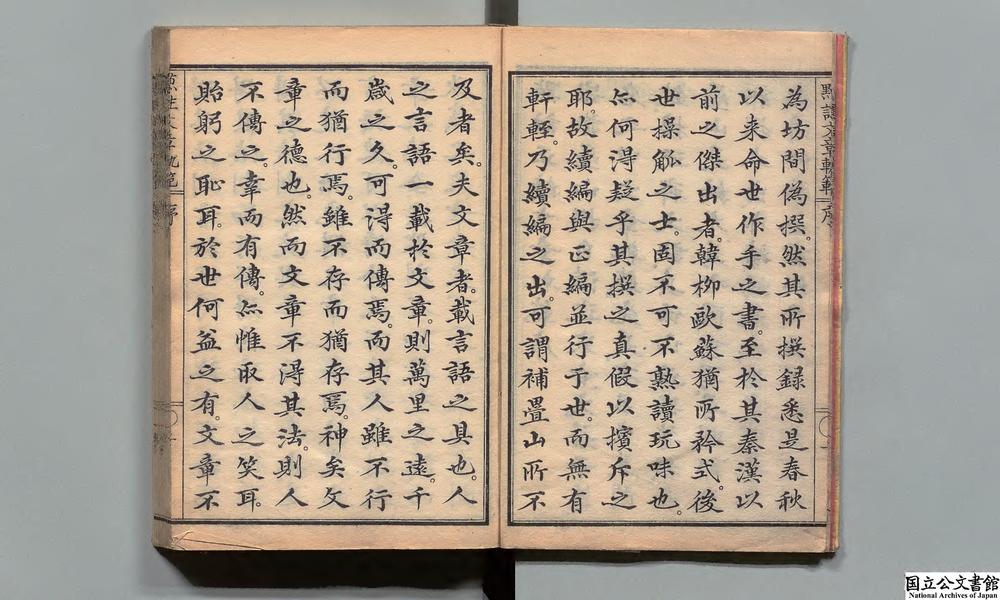 為坊間偽撰。然其所撰録悉是春秋
以来命世作手之書。至於其秦漢以
前之傑出者。韓柳歐蘇猶所矜式。後
世操觚之士。固不可不熟讀玩味也。
亦何得疑乎其撰之真假以擯斥之
耶。故續編與正編並行于世。而無有
軒輊。乃續編之出。可謂補疊山所不
及者矣。夫文章者。載言語之具也。人
之言語一載於文章。則萬里之遠。千
歳之久。可得而傳焉。而其人雖不行
而猶行焉。雖不存而猶存焉。神矣文
章之德也。然而文章不得其法。則人
不傳之。幸而有傳。亦惟取人之笑耳。
貽躬之恥耳。於世何益之有。文章不
国立公文書館
National Archives of Japan